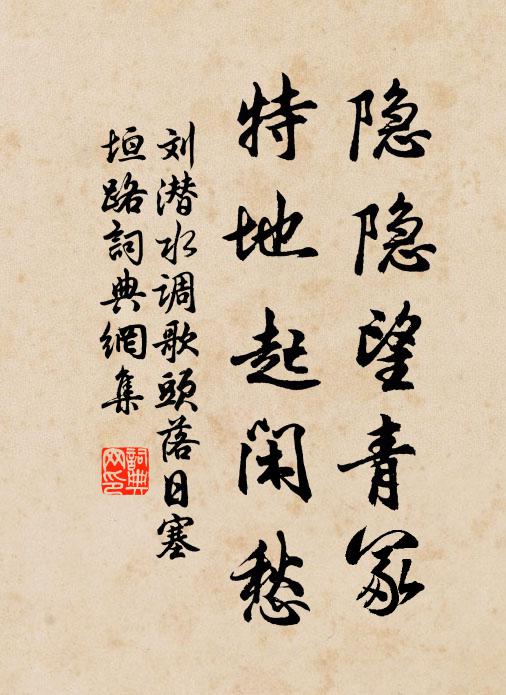 隐隐望青冢
特地起闲愁
刘潜水调歌头落日塞
垣路詞典網集
詞典網印